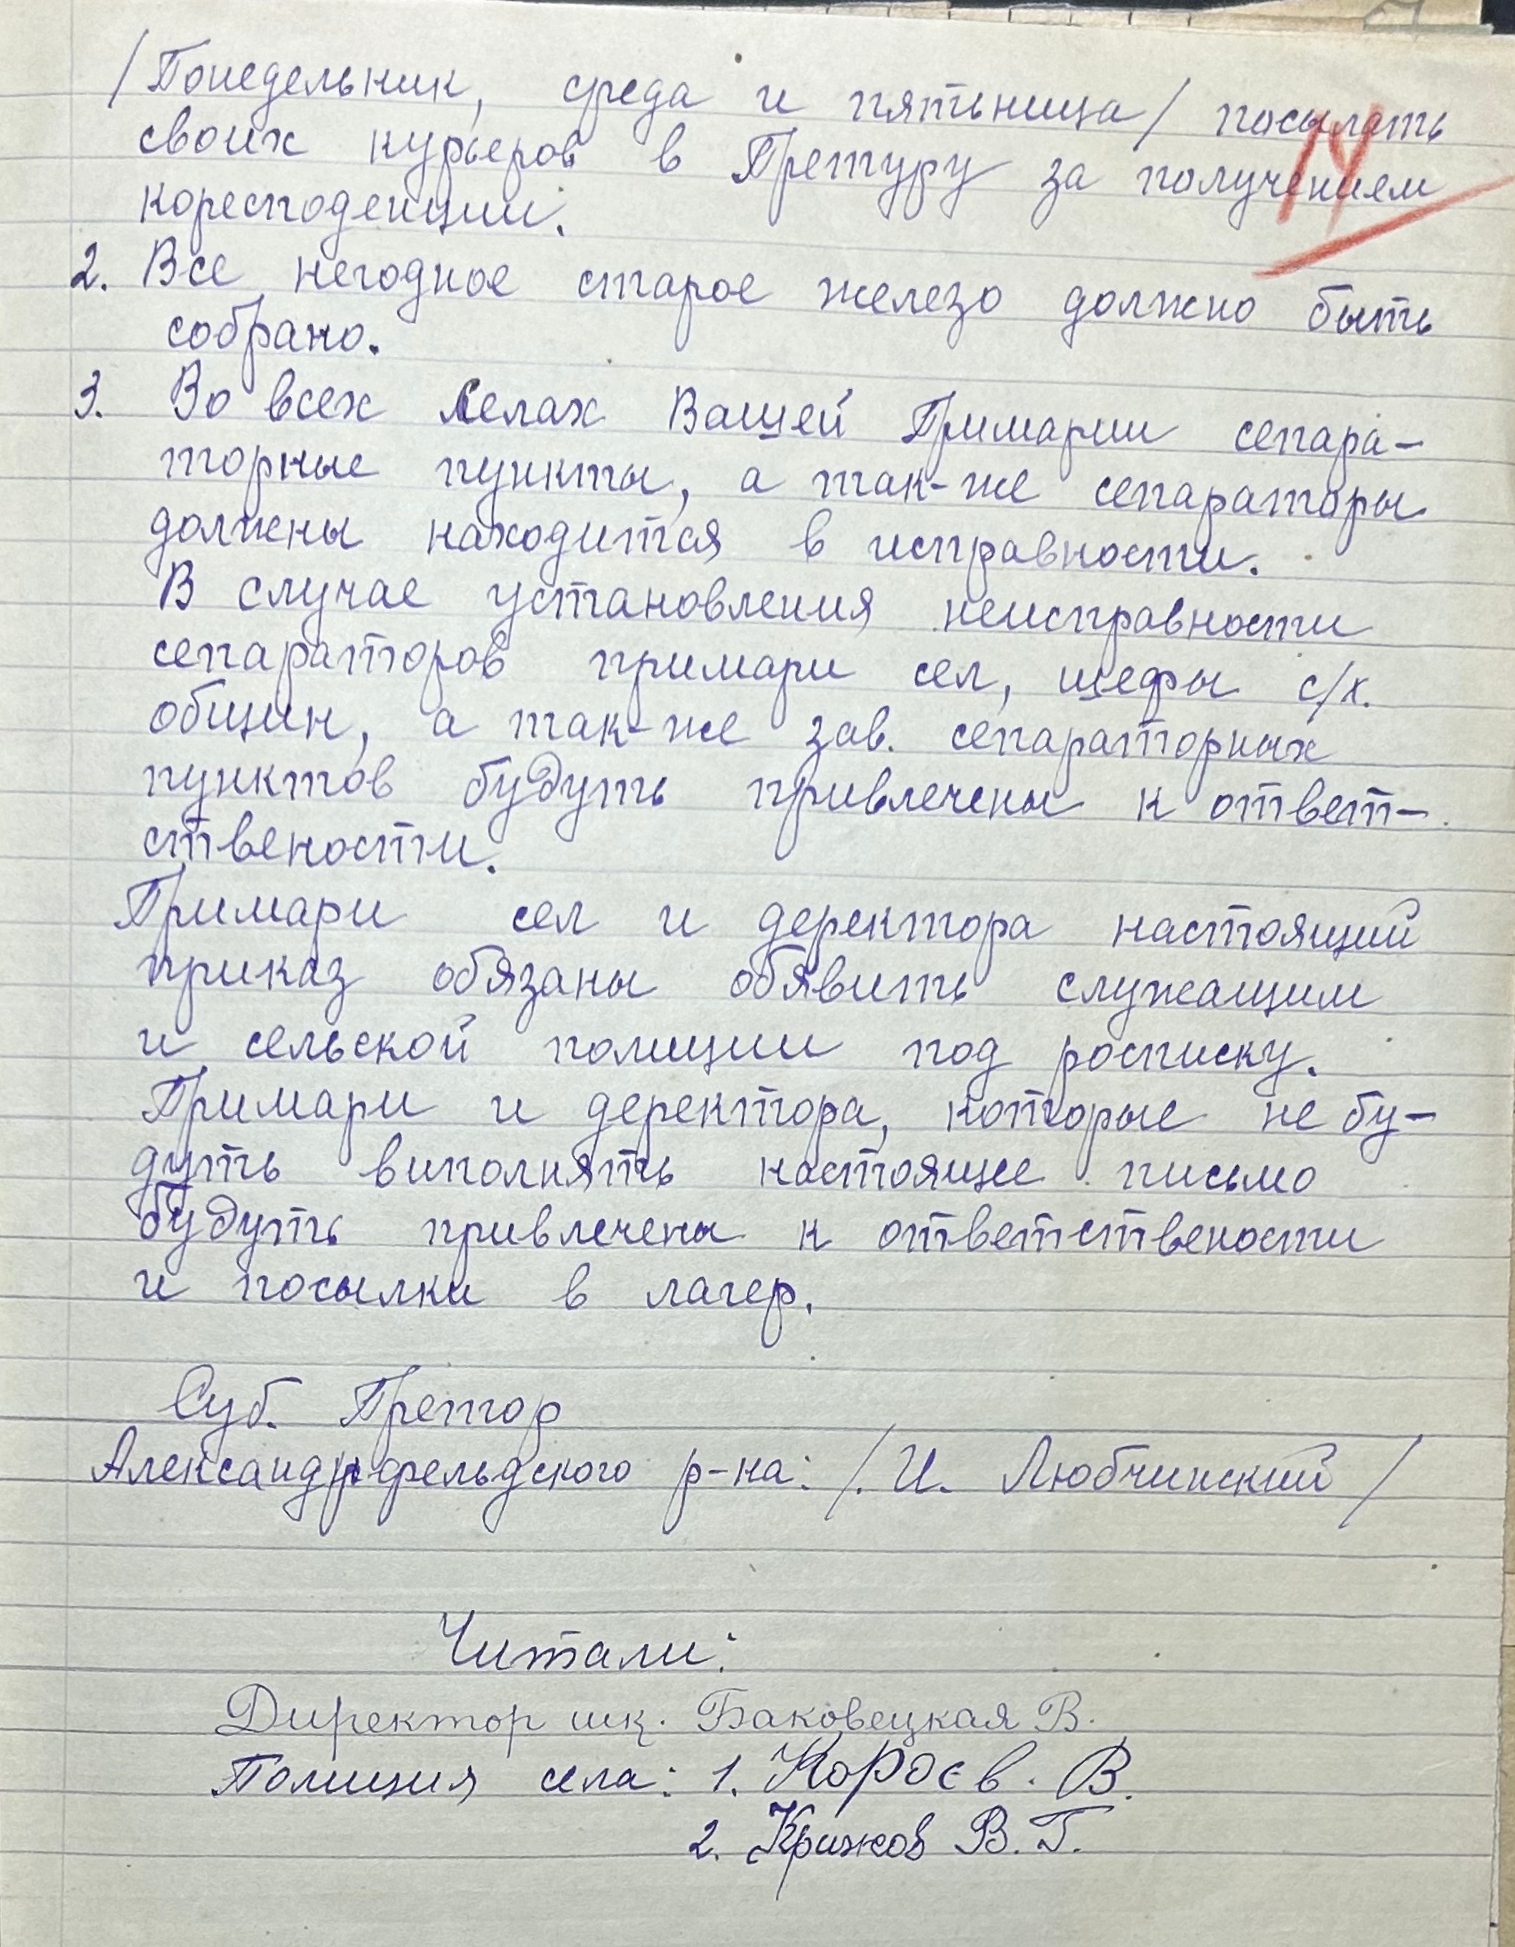 /Понедельник, среда и пятьница/ посылать
14
своих курьеров в Претуру за получением
коресподенции.
2. Все негодное старое железо должно быть
собрано.
3. Во всех селах Вашей Примарии сепара-
торные пункты, а так-же сепараторы
должны находится в исправности.
В случае установления неисправности
сепараторов примари сел, шефы с/х.
общин, а так-же зав. сепараторных
пунктов будуть привлечены к ответ-
ствености.
Примари сел и деректора настоящий
приказ обязаны обявить служащим
и сельской полиции под росписку.
Примари и деректора, которые не бу-
дуть виполнять настоящее письмо
будуть привлечены к ответствености
и посылки в лагер.
Суб. Претор
Александрфельдского р-на: /. И. Любчинский /
Читали:
Директор шк. Баковецкая В.
Полиция села: 1. Короєв. В.
2. Крижов В. Г.